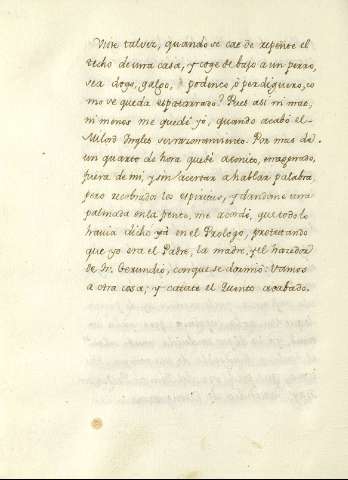 Viste talvez, quando se cae de repente el
techo de una casa, y coge debajo a un perro,
sea dogo, galgo, ò podenco, ò perdiguero, co
mo se queda espatarrado? Pues asi ni mas,
ni menos me quedè yò, quando acabò el
Milord Ingles su razonamiento. Por mas de
un quarto de hora quedè atonito, enagenado,
fuera de mi, y sin acertar a hablar palabra,
pero recobrados los espiritus, y dandome una
palmada en la frente, me acordè, que todo lo
havia dicho yà en el Prologo, protestando
que yo era el Padre, la madre, y el hacedor
de Fr. Gerundio, conque se dormiò: Vamos
a otra cosa; y catate el Quinto acabado.